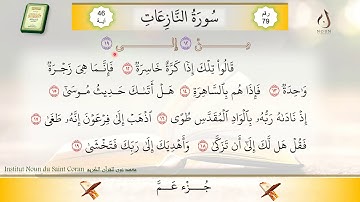 46
آية
سُورَةُ النَّازِعَاتِ
رقم
79
NOUN
مِنْ ١٢ إِلَى ١٩
قَالُوا۟ تِلْكَ إِذًا كَرَّةٌ خَاسِرَةٌ ١٢ فَإِنَّمَا هِىَ زَجْرَةٌ
وَٰحِدَةٌ ١٣ فَإِذَا هُم بِٱلسَّاهِرَةِ ١٤ هَلْ أَتَىٰكَ حَدِيثُ مُوسَىٰٓ ١٥
إِذْ نَادَىٰهُ رَبُّهُۥ بِٱلْوَادِ ٱلْمُقَدَّسِ طُوًى ١٦ ٱذْهَبْ إِلَىٰ فِرْعَوْنَ إِنَّهُۥ طَغَىٰ ١٧
فَقُلْ هَل لَّكَ إِلَىٰٓ أَن تَزَكَّىٰ ١٨ وَأَهْدِيَكَ إِلَىٰ رَبِّكَ فَتَخْشَىٰ ١٩
Institut Noun du Saint Coran معهد نون للقرآن الكريم
جُزْء عَمَّ